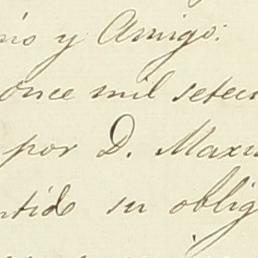 y Amigo:
once mil setec
por D. Maxi
ntido su oblig